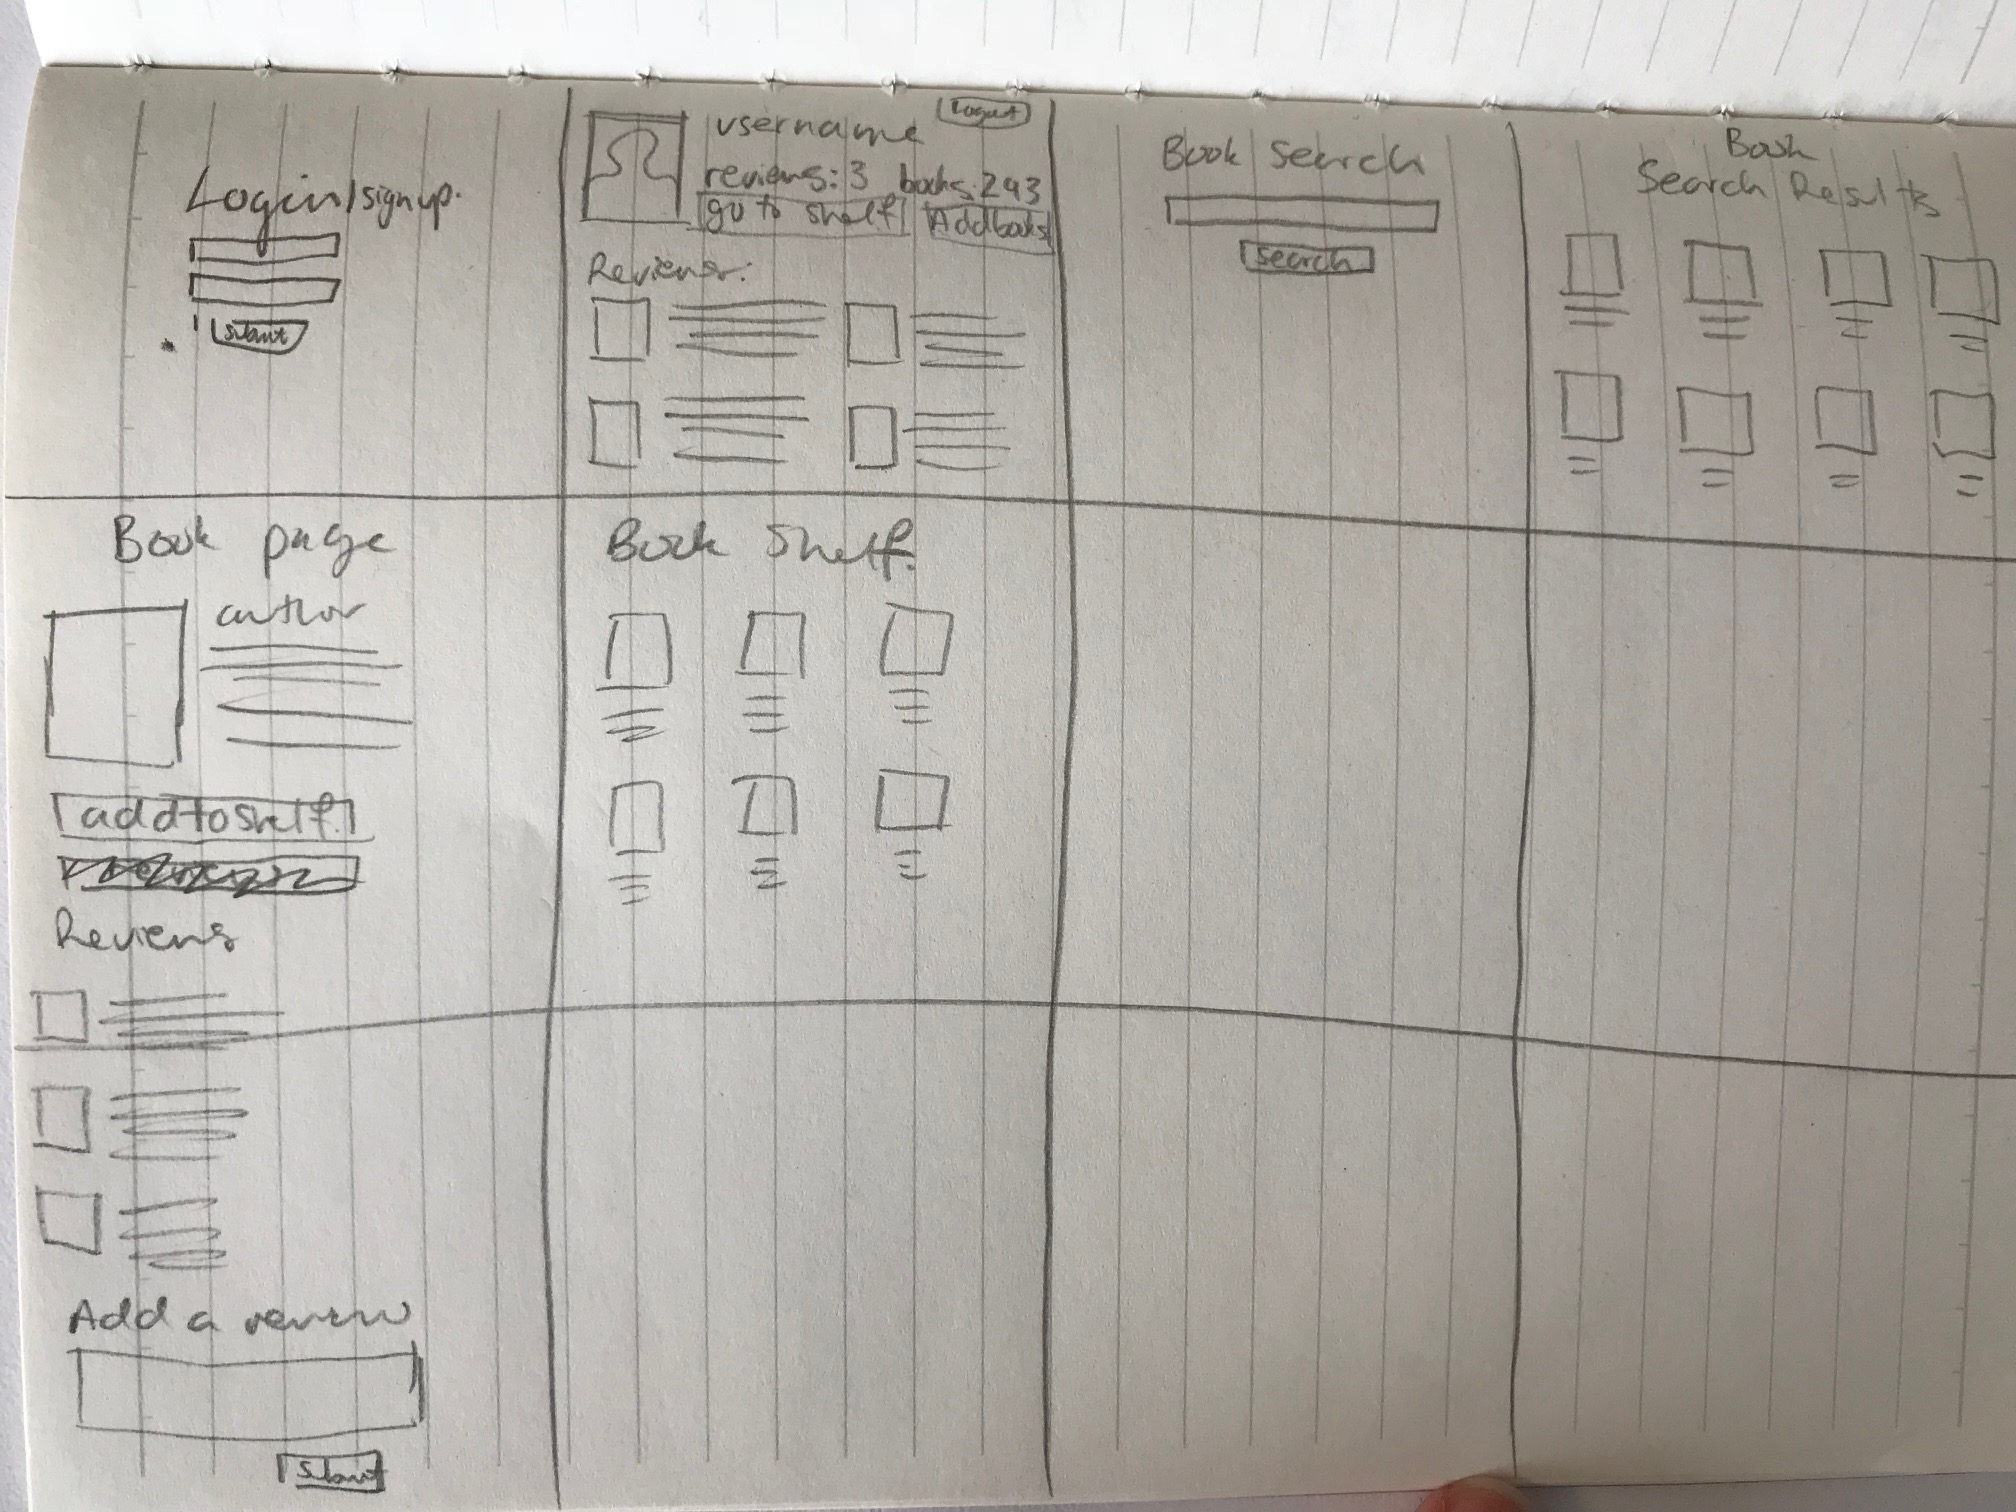 Login/signup.
Submit
username
Logout
reviews:3 books.243
go to shelf Add books
Reviews:
Book Search
Search
Book
Search Results
Book page
author
add to shelf.
Reviews
Add a review
Submit
Book Shelf.